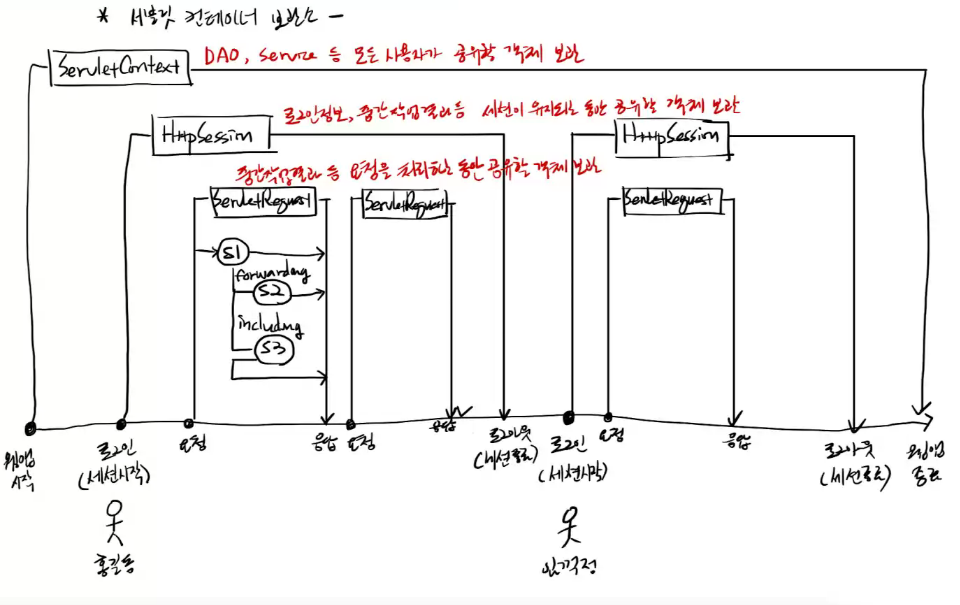 * 서블릿 컨테이너 보관소 -
ServletContext
DAO, Service 등 모든 사용자가 공유할 객체 보관
HttpSession
로그인정보, 중간작업결과 등 세션이 유지되는 동안 공유할 객체 보관
HttpSession
중간작업결과 등 요청을 처리하는 동안 공유할 객체 보관
ServletRequest
ServletRequest
ServletRequest
S1
forwarding
S2
including
S3
웹앱
시작
로그인
(세션시작)
요청
응답
요청
응답
로그아웃
(세션종료)
로그인
(세션시작)
요청
응답
로그아웃
(세션종료)
웹앱
종료
홍길동
임꺽정